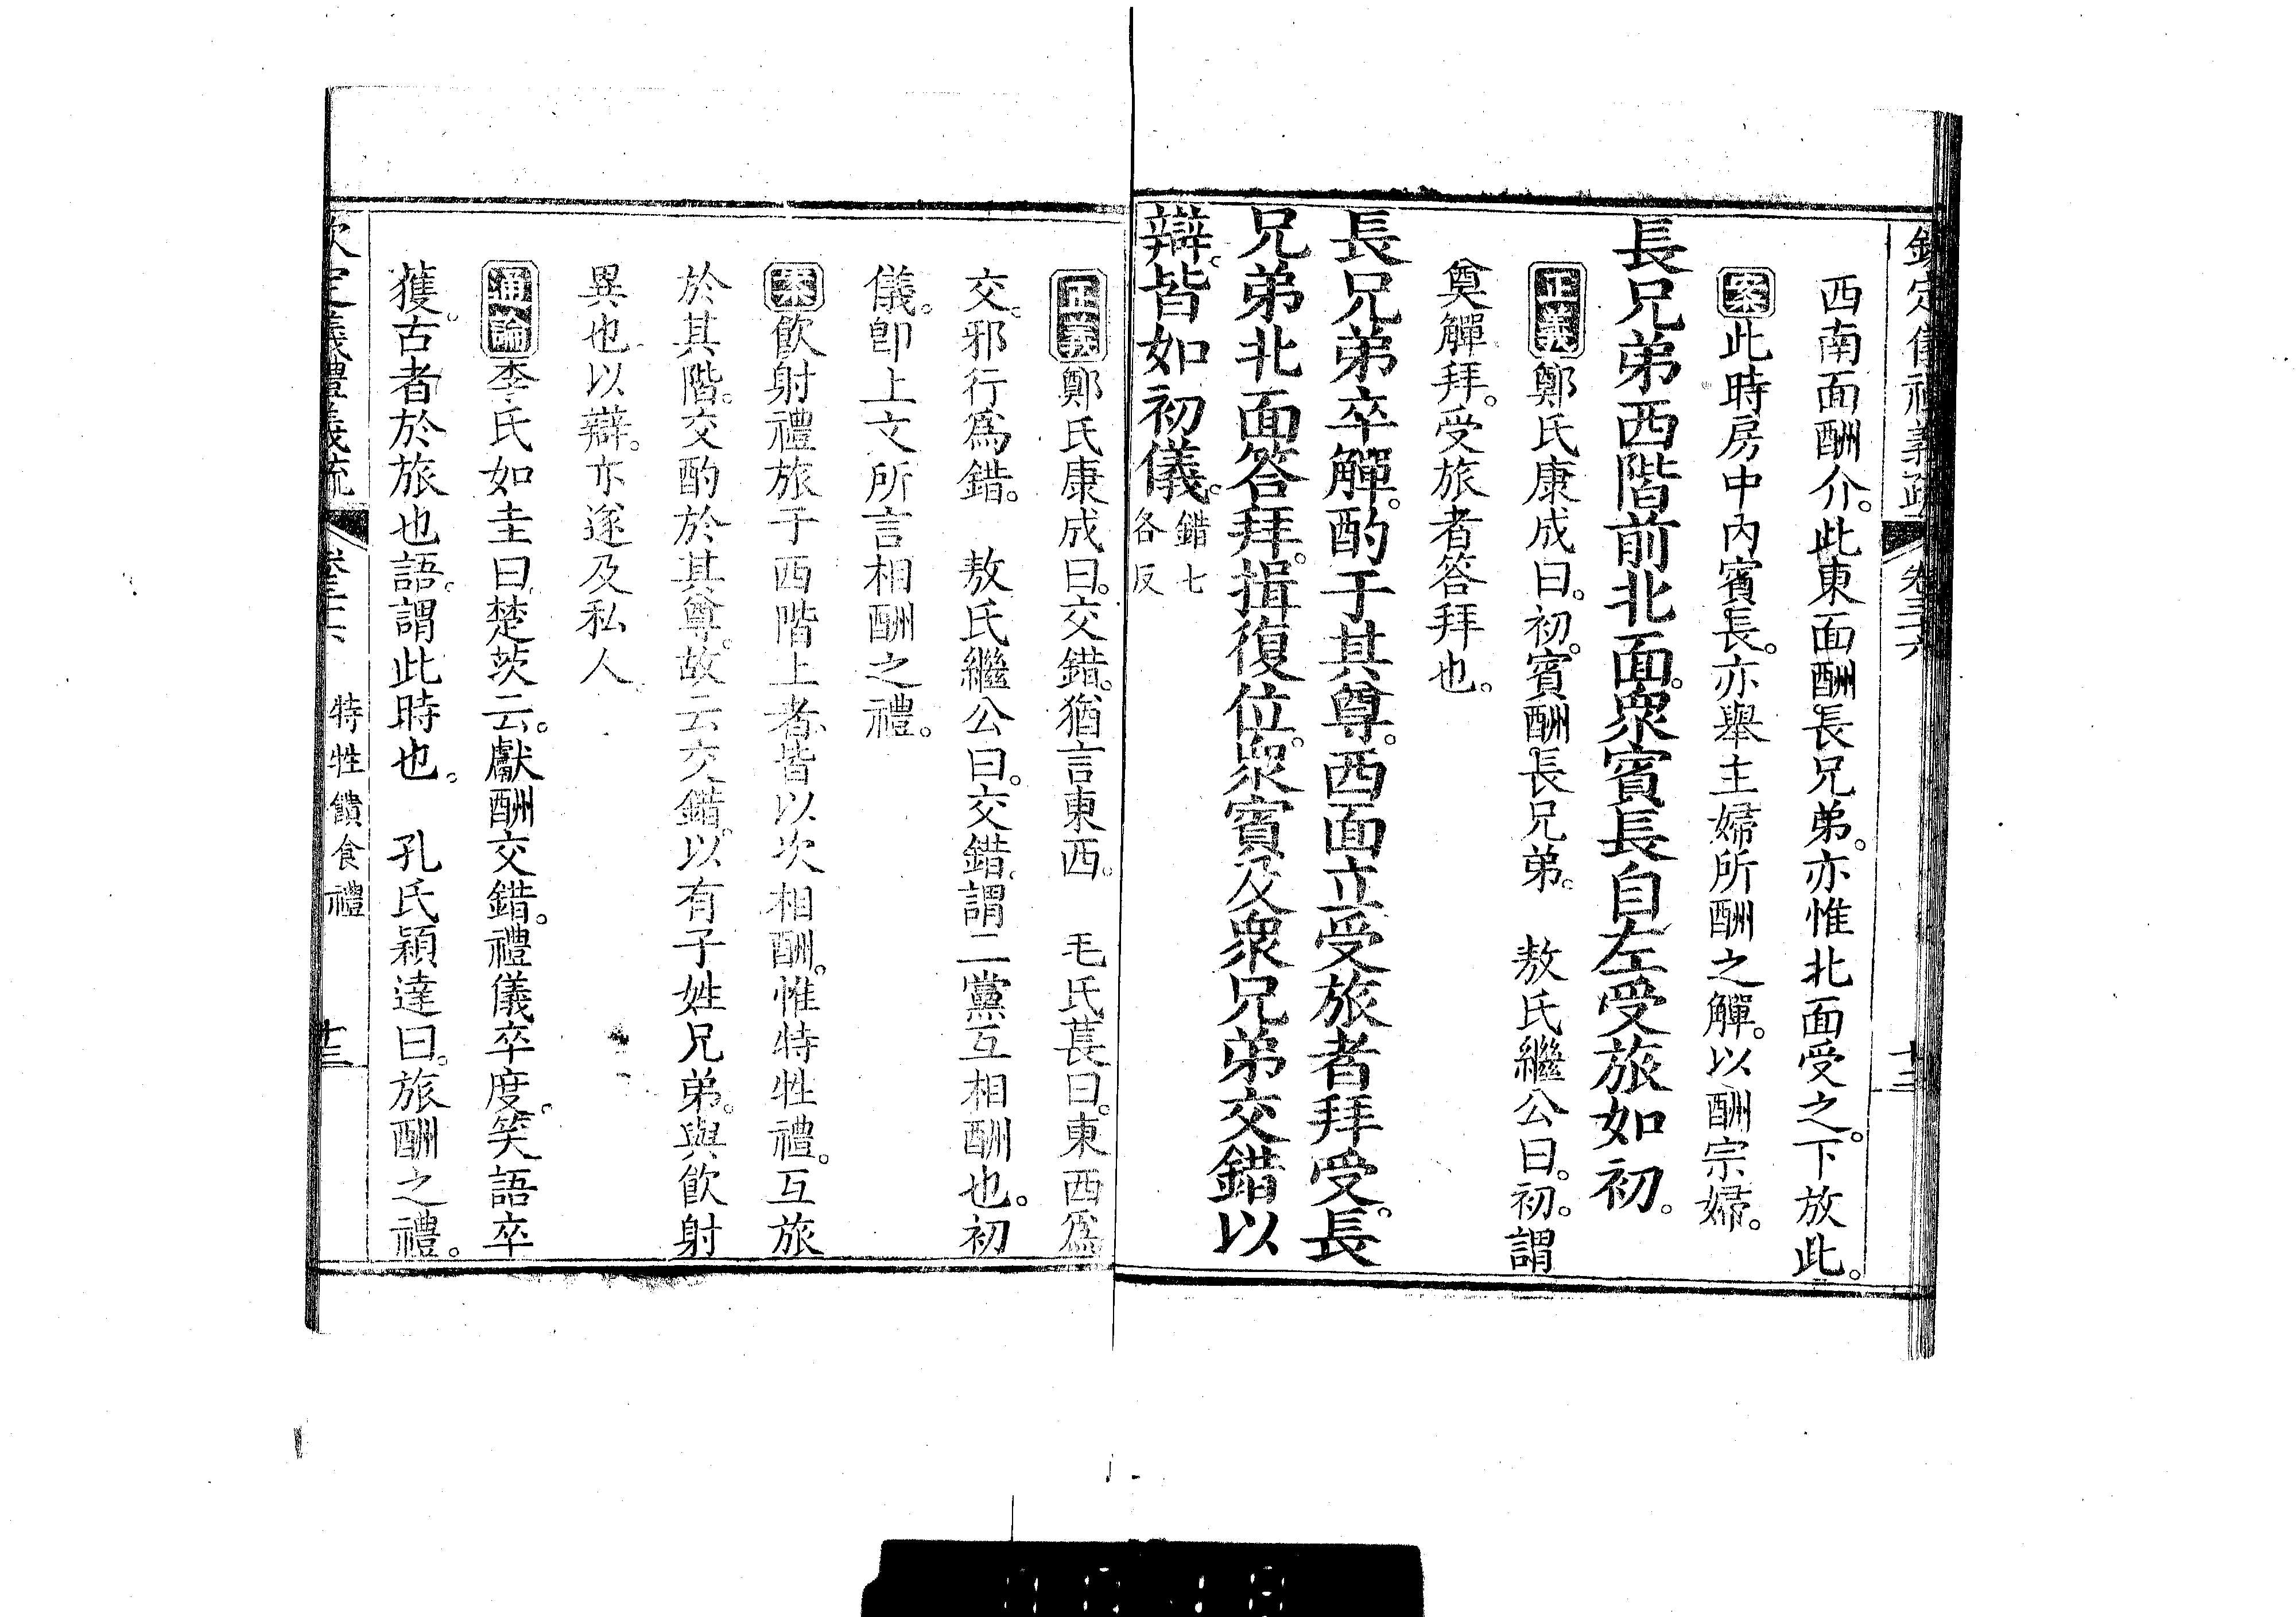 欽定儀禮義疏 卷三十六
西南面酬介。此東面酬長兄弟。亦惟北面受之。下放此。
案此時房中內賓長。亦舉主婦所酬之觶。以酬宗婦。
長兄弟西階前北面。衆賓長自左受旅如初。
正義鄭氏康成曰。初。賓酬長兄弟。 敖氏繼公曰。初。謂
奠觶拜。受旅者答拜也。
長兄弟卒觶。酌于其尊。西面立。受旅者拜受。長
兄弟北面答拜。揖復位。衆賓及衆兄弟交錯以
辯。皆如初儀。錯七
各反
正義鄭氏康成曰。交錯。猶言東西。 毛氏萇曰。東西爲
交。邪行爲錯。 敖氏繼公曰。交錯。謂二黨互相酬也。初
儀。卽上文所言相酬之禮。
案飲射禮旅于西階上者。皆以次相酬。惟特牲禮。互旅
於其階。交酌於其尊。故云交錯。以有子姓兄弟。與飲射
異也以辯。亦遂及私人。
通論李氏如圭曰。楚茨云。獻酬交錯。禮儀卒度。笑語卒
獲。古者於旅也語。謂此時也。 孔氏穎達曰。旅酬之禮。
欽定儀禮義疏 卷三十六 特牲饋食禮 十三